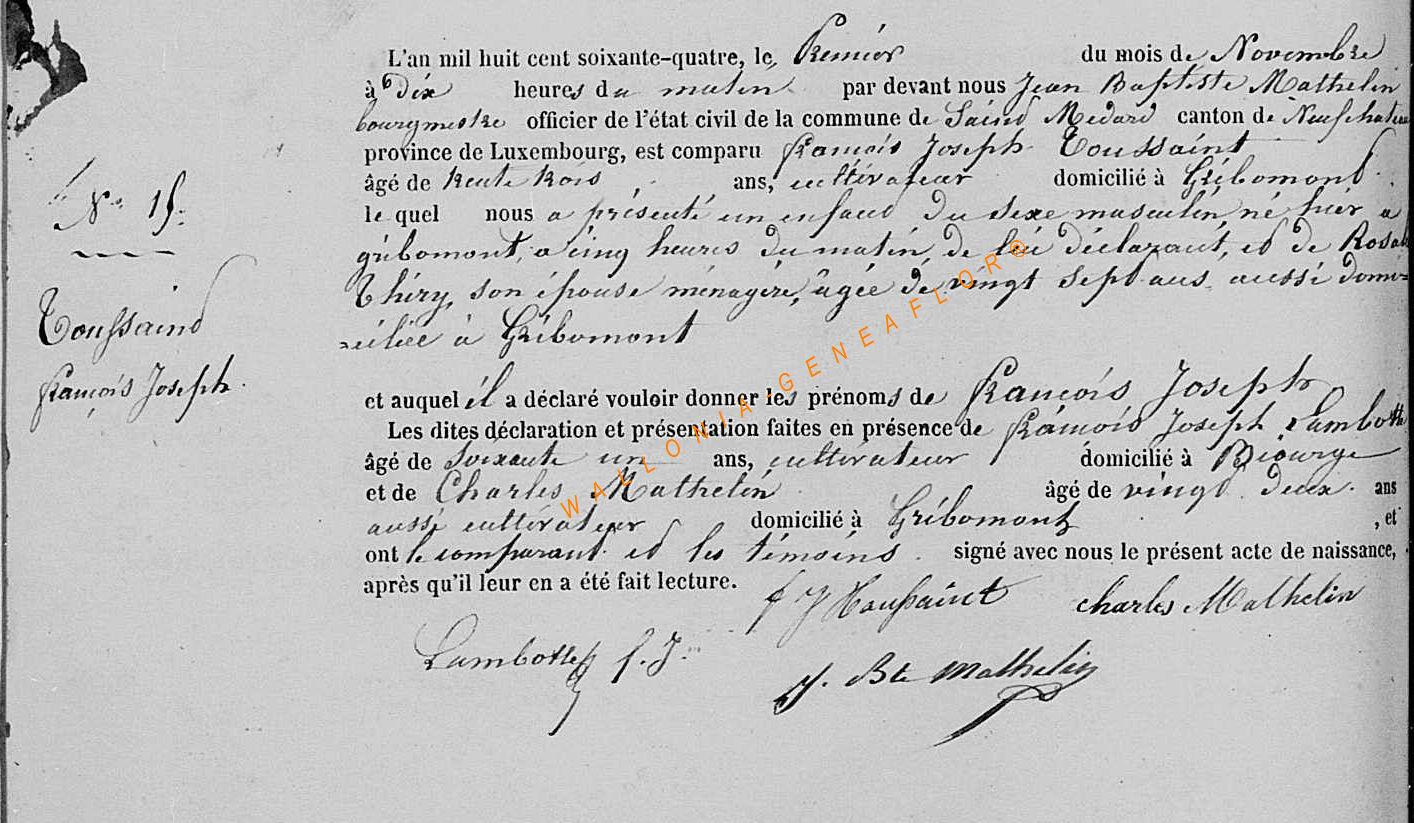 L'an mil huit cent soixante-quatre, le Premier du mois de Novembre
à Dix heures du matin par devant nous Jean Baptiste Mathelin
bourgmestre officier de l'état civil de la commune de Saind Medard canton de Neufchateau
province de Luxembourg, est comparu François Joseph Toussaint
âgé de trente trois ans, cultivateur domicilié à Gribomont
N° 15
le quel nous a présenté un enfand du sexe masculin, né hier a
gribomont, a cinq heures du matin, de lui déclarant, et de Rosalie
Thiry, son épouse ménagère, âgée de vingt sept ans aussi domi=
=ciliée à Gribomont
Toussaind
François Joseph
et auquel il a déclaré vouloir donner les prénoms de François Joseph
Les dites déclaration et présentation faites en présence de François Joseph Lambotte
âgé de soixante un ans, cultivateur domicilié à Biourge
et de Charles Mathelin âgé de vingt deux ans
aussi cultivateur domicilié à Gribomont, et
ont le comparant et les témoins signé avec nous le présent acte de naissance,
après qu'il leur en a été fait lecture.
f J Toussaint charles Mathelin
Lambotte f. J.
J. Bte Mathelin
WALLONIA-GENEAFLOR®